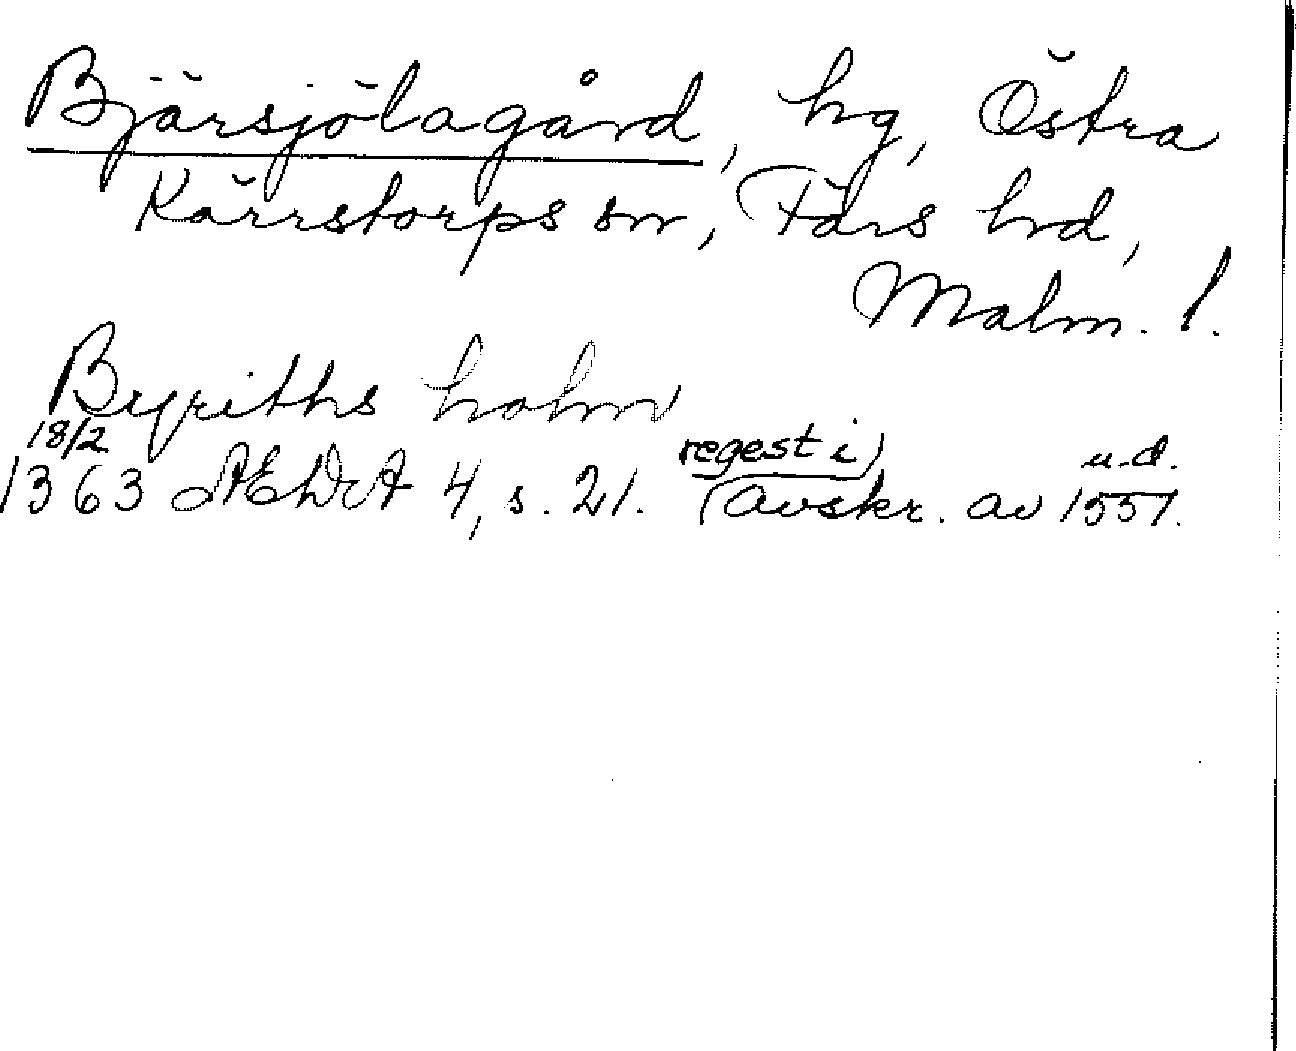 Bjärsjölagård, hg, Östra
Kärrstorps sn, Färs hd,
Malm. l.
Byriths holm
18/2 regest i) u.d.
1363 ÆDA 4, s. 21. (Avskr. av 1551.